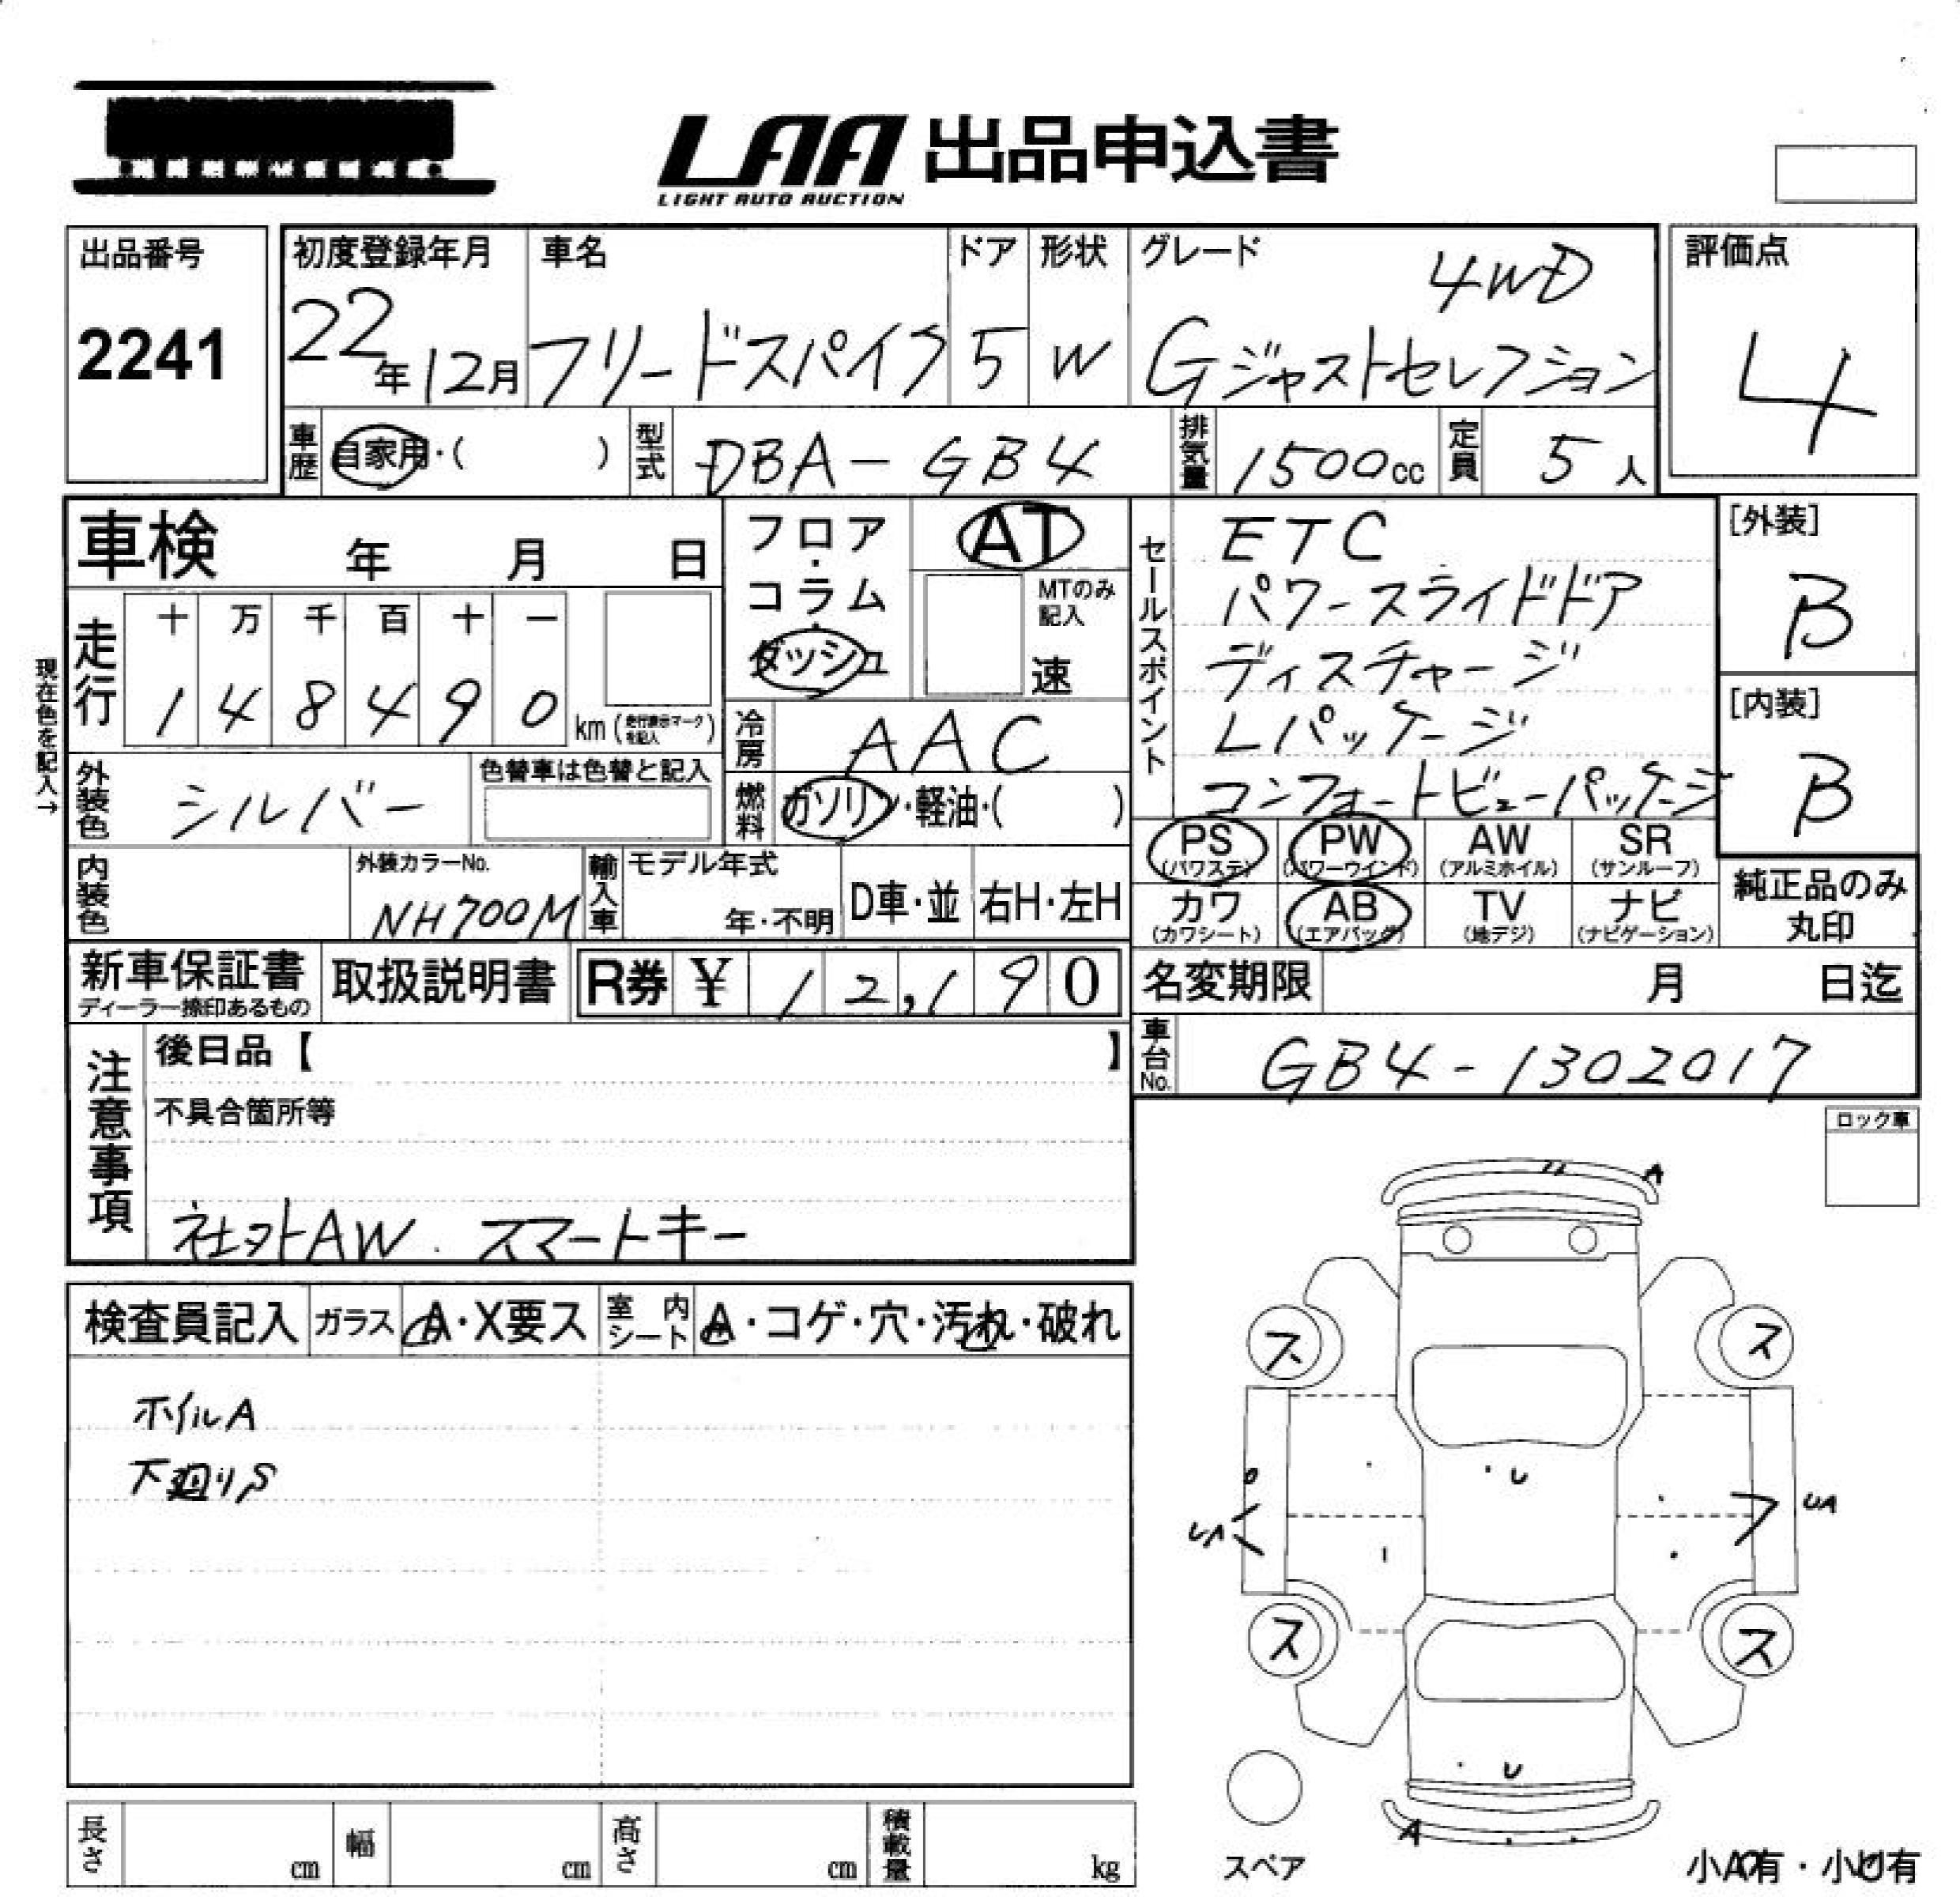 LAA 出品申込書
LIGHT AUTO AUCTION
出品番号
2241
初度登録年月
22年12月
車名
フリードスパイク
ドア
5
形状
W
グレード
4WD
Gジャストセレクション
評価点
4
車歴 自家用・( )
型式 DBA-GB4
排気量 1500cc
定員 5人
車検 年 月 日
フロア・コラム・ダッシュ
AT
MTのみ記入
速
セールスポイント
ETC
パワースライドドア
ディスチャージ
Lパッケージ
コンフォートビューパッケージ
[外装]
B
[内装]
B
現在色を記入→
走行
十 万 千 百 十 一
1 4 8 4 9 0 km (走行表示マークを記入)
冷房 AAC
外装色 シルバー
色替車は色替と記入
燃料 ガソリン・軽油・( )
PS (パワステ)
PW (パワーウインド)
AW (アルミホイル)
SR (サンルーフ)
カワ (カワシート)
AB (エアバック)
TV (地デジ)
ナビ (ナビゲーション)
純正品のみ丸印
内装色
外装カラーNo.
NH700M
輸入車
モデル年式
年・不明
D車・並
右H・左H
新車保証書
ディーラー捺印あるもの
取扱説明書
R券 ¥ 12,190
名変期限 月 日迄
車台No. GB4-1302017
注意事項
後日品【 】
不具合箇所等
社外AW. スマートキー
ロック車
検査員記入
ガラス A・X要ス
室内シート A・コゲ・穴・汚れ・破れ
ホイルA
下廻りS
A
ス ス
U
UA UA
ス ス
U
A
スペア
小A有・小U有
長さ cm
幅 cm
高さ cm
積載量 kg